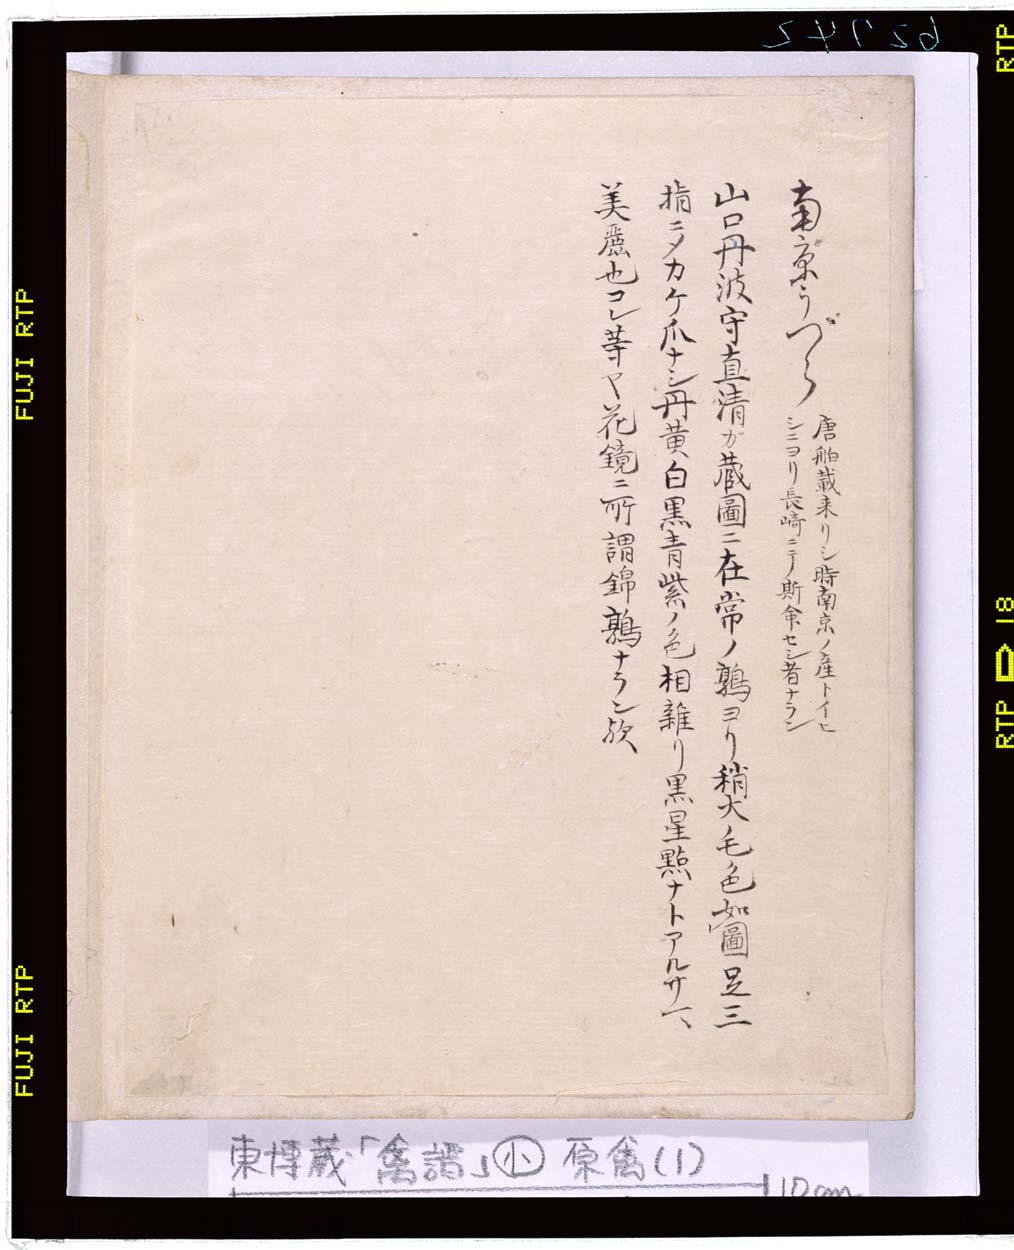 62742
南京うづら
唐舶載来リシ時南京ノ産トイヒ
シニヨリ長崎ニテ斯余セシ者ナラン
山口丹波守直清ガ蔵圖ニ在常ノ鶉ヨリ稍大毛色如圖足三
指ニ〆カケ爪ナシ丹黄白黒青紫ノ色相雑り黒星點ナトアルサ
美麗也コレ等ヤ花鏡ニ所謂錦鶉ナラン欤
東博蔵「禽譜」小 原禽(1)
10cm
FUJI RTP
FUJI RTP
RTP
RTP 18